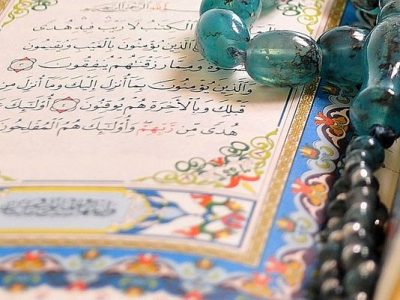 الكتاب لا ريب فيه هدى
الذين يؤمنون بالغيب ويقيمون
ومما رزقناهم ينفقون
والذين يؤمنون بما أنزل إليك وما أنزل من
قبلك وبالآخرة هم يوقنون أولئك
هدى من ربهم وأولئك هم المفلحون